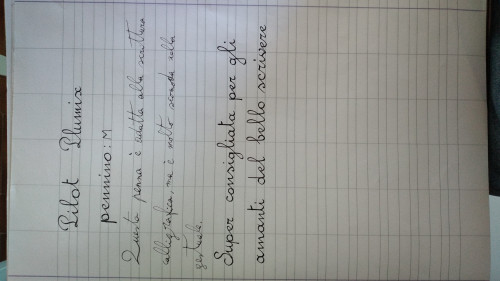 Pilot Plumix
pennino: M
Questa penna è adatta alla scrittura
calligrafica, ma è molto comoda nella
gestuale.
Super consigliata per gli
amanti del bello scrivere